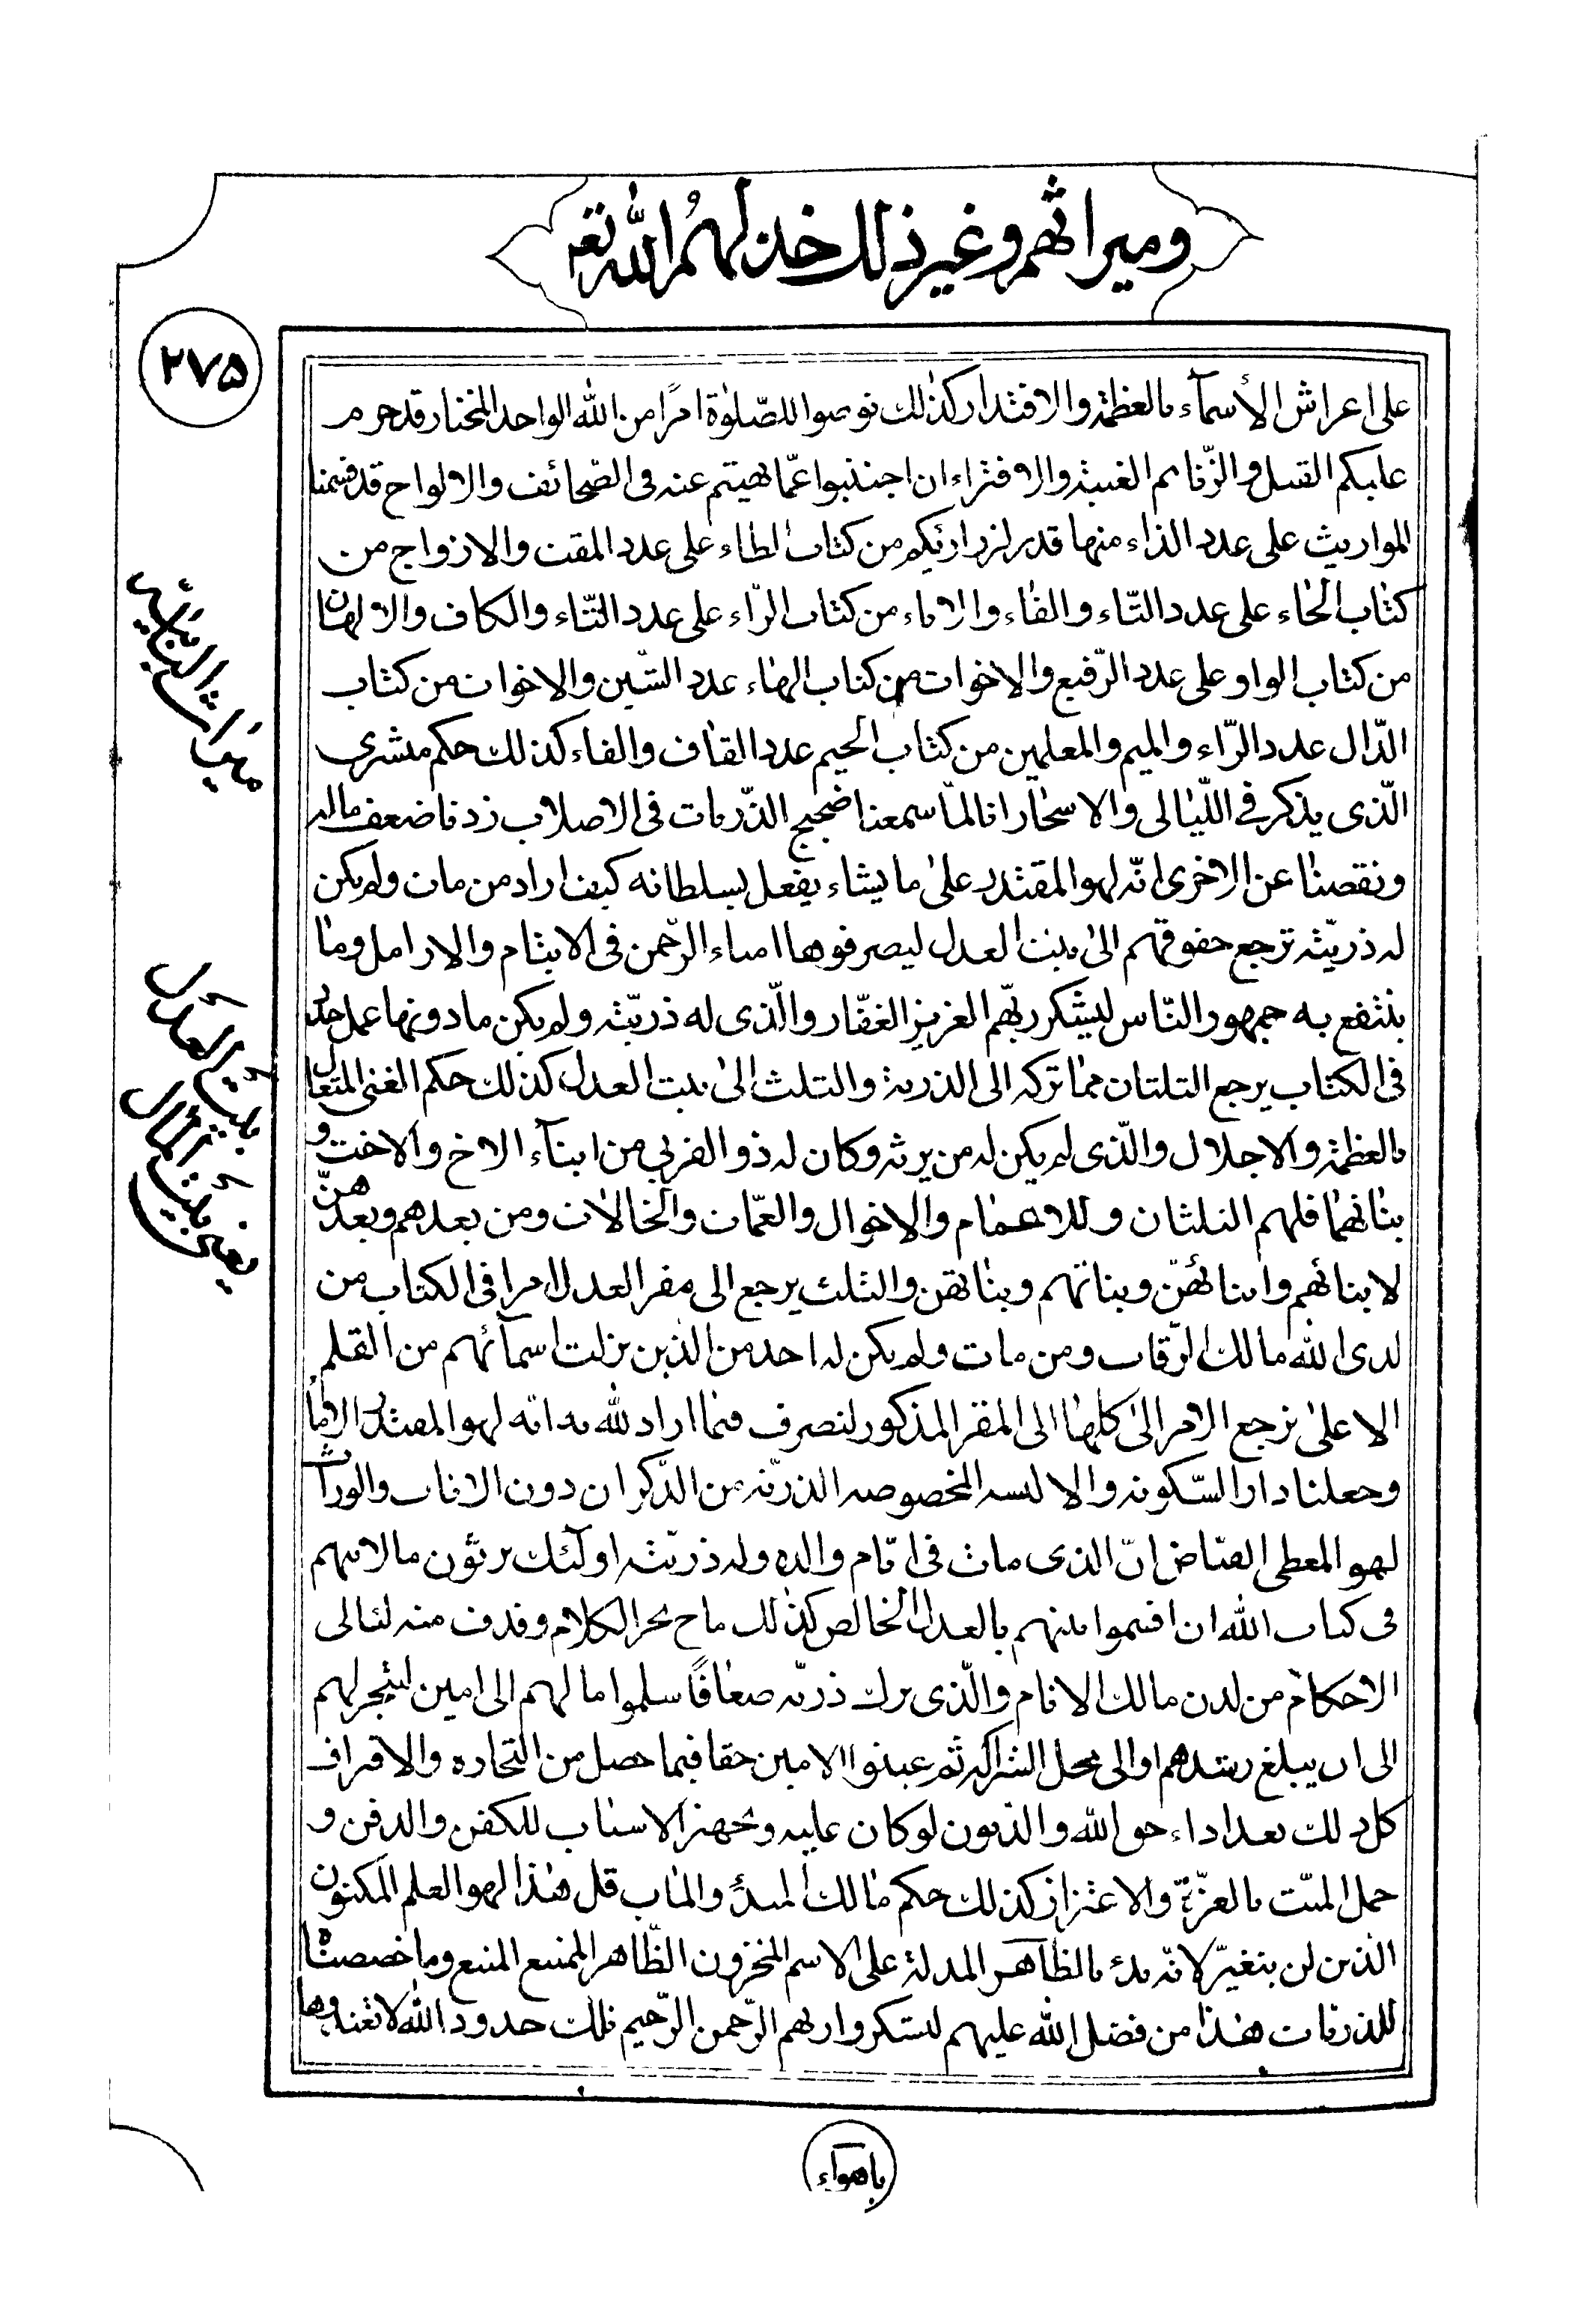 وميراثهم وغير ذلك خذلهم الله تعه
٢٧۵
على اعراش الأسمآء بالعظمة والاقتدار كذلك توضوا للصّلوٰة امرًا من الله الواحد المختار قد حرم
عليكم القتل والزّنا ثم الغيبة والافتراء ان اجتنبوا عمّا نهيتم عنه فى الصّحائف والالواح قد قسمنا
المواريث على عدد الزاء منها قدر لزرارئكم من كتاب الطاء على عدد المقت والازواج من
كتاب الحاء على عدد التّاء والفاء والاباء من كتاب الزّاء على عدد التّاء والكاف والامهات
من كتاب الواو على عدد الرّفيع والاخوان من كتاب الهاء عدد الشّين والاخوات من كتاب
الدّال عدد الرّاء والميم والمعلمين من كتاب الجيم عدد القاف والفاء كذلك حكم مبشرى
الّذى يذكرنى فى اللّيالى والاسحار انا لمّا سمعنا ضجيج الذّريات فى الاصلاب زدنا ضعف مالهم
ونقصنا عن الاخرى انّه لهو المقتدر على ما يشاء يفعل بسلطانه كيف اراد من مات ولم يكن
له ذريّته ترجع حقوقهم الى بيت العدل ليصرفوها امناء الرّحمن فى الايتام والارامل وما
ينتفع به جمهور النّاس ليشكر ربّهم العزيز الغفّار والّذى له ذريّته ولم يكن مادونها عمل حدد
فى الكتاب يرجع الثلثان مما تركه الى الذرية والثلث الى بيت العدل كذلك حكم الغنى المتعال
بالعظمة والاجلال والّذى لم يكن له من يرثه وكان له ذو القربى من ابنآء الاخ والاخت و
بناتهما فلهم الثلثان وللاعمام والاخوال والعمّات والخالات ومن بعدهم وبعدهنّ
لابنائهم وابنائهنّ وبناتهم وبناتهن والثلث يرجع الى مقر العدل امرا فى الكتاب من
لدى الله مالك الرّقاب ومن مات ولم يكن له احد من الّذين نزلت اسمآئهم من القلم
الاعلى ترجع الامر الى كلها الى المقر المذكور لتصرف فيما اراد لله به انه لهو المقتدر الامار
وجعلنا دار السّكونه والالبسه المخصوصه الذريّه من الذّكران دون الاناث والوراث
لهو المعطى الفيّاض انّ الذى مات فى ايّام والده وله ذريّته اولٓئك يرثون مالابيهم
فى كتاب الله ان اقسموا بينهم بالعدل الخالص كذلك ماج بحر الكلام وقذف منه لئالى
الاحكام من لدن مالك الانام والّذى ترك ذريّه ضعافًا سلموا مالهم الى امين ليتجر لهم
الى ان يبلغ رشدهم او الى محل الشراكة ثم عينوا الامين حقا فيما حصل من التجاره والاقتراف
كل ذلك بعد اداء حق الله والدّيون لو كان عليه وتجهيز الاسباب للكفن والدفن و
حمل الميّت بالعزّة والاعتزاز كذلك حكم مالك المبدء والماب قل هذا لهو العلم المكنون
الذين لن يتغيّر لانّه بدء بالظآهر المدلة على الاسم المخزون الظّاهر الممتنع المنيع وما خصصناه
للذريات هذا من فضل الله عليهم ليشكروا ربهم الرّحمن الرّحيم تلك حدود الله لا تعتدوها
ميراث البيانيه
بيت العدل
يعنى بيت المال
باهواء